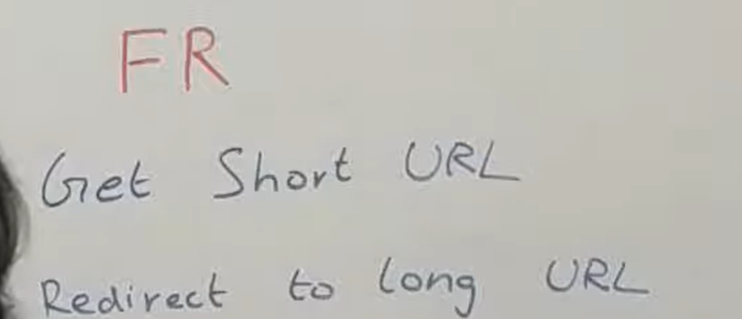 FR
Get Short URL
Redirect to long URL